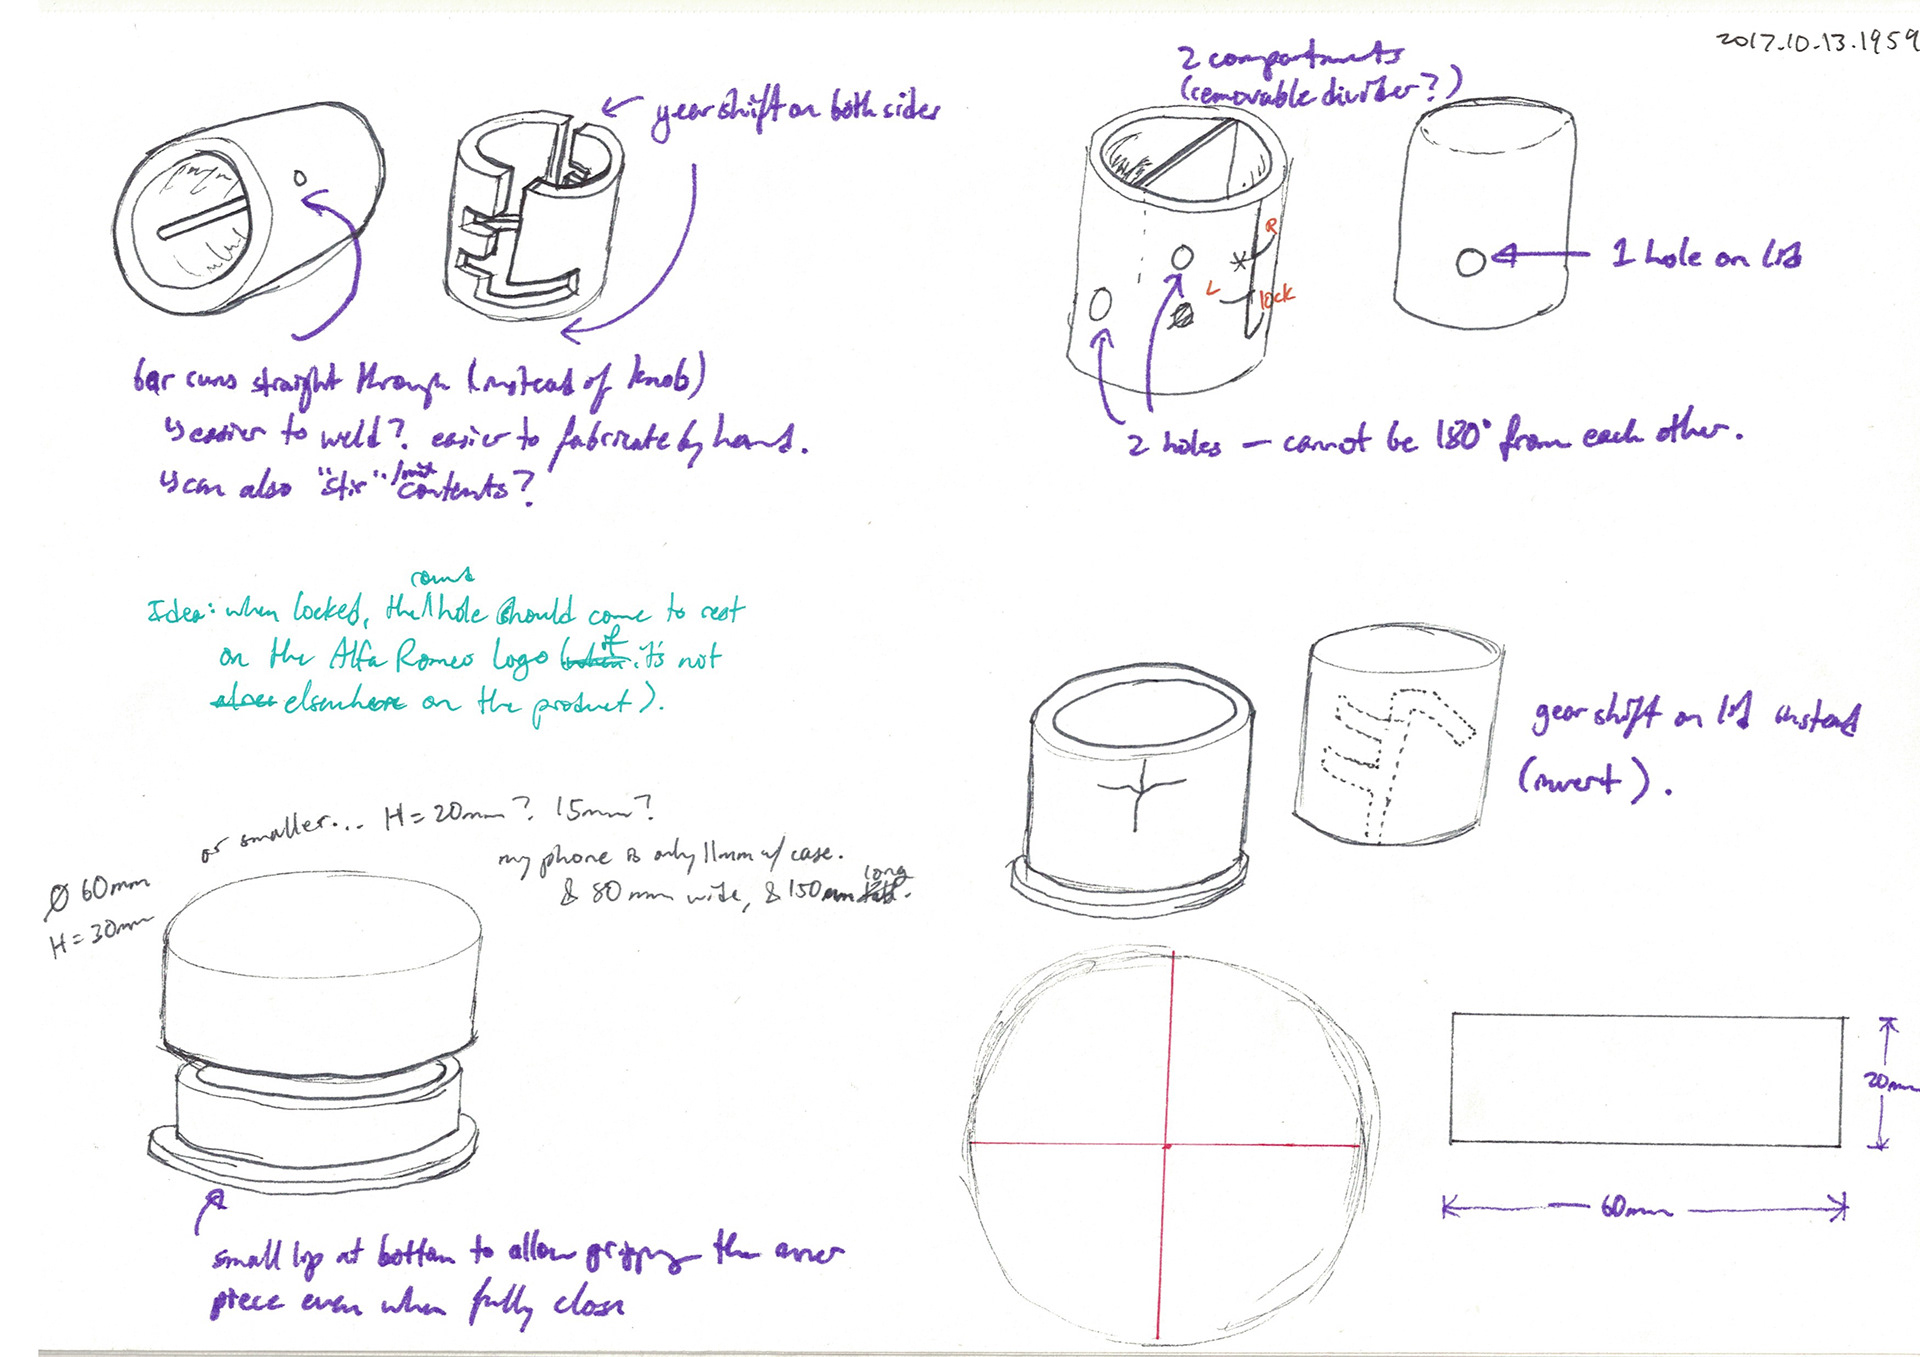 2017.10.13.1959
gear shift on both sides
bar runs straight through (instead of knob)
↳ easier to weld? easier to fabricate by hand.
↳ can also "stir"/mix contents?
2 compartments
(removable divider?)
R
L
lock
1 hole on lid
2 holes — cannot be 180° from each other.
round
Idea: when locked, the hole should come to rest
on the Alfa Romeo Logo (if it's not
elsewhere on the product).
gear shift on lid instead
(invert).
or smaller... H = 20mm? 15mm?
my phone is only 11mm w/ case.
& 80mm wide, & 150mm long.
Ø 60mm
H = 30mm
small lip at bottom to allow gripping the inner
piece even when fully close
20mm
60mm